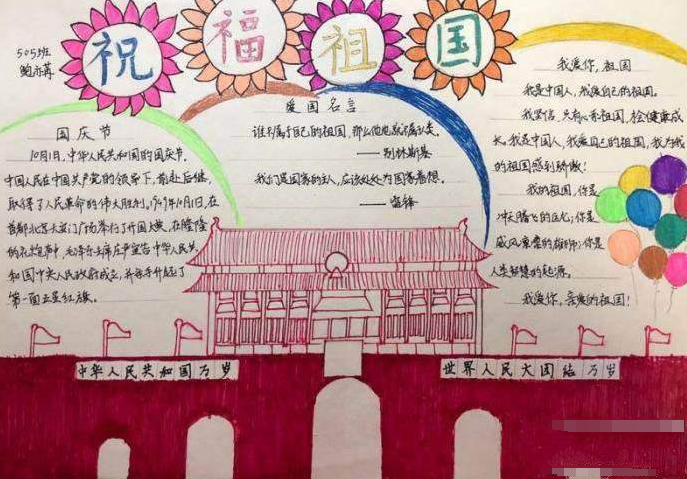 祝福祖国
505班
鲍亦苒
国庆节
10月1日,中华人民共和国的国庆节。
中国人民在中国共产党的领导下,前赴后继,
取得了人民革命的伟大胜利。1949年10月1日,在
首都北京天安门广场举行了开国大典,在隆隆
的礼炮声中,毛泽东主席庄严宣告中华人民共
和国中央人民政府成立,并亲手升起了
第一面五星红旗。
爱国名言
谁不属于自己的祖国,那么他也就不属于人类。
——别林斯基
我们是国家的主人,应该处处为国家着想。
——雷锋
我爱你,祖国
我是中国人,我爱自己的祖国。
我坚信,只有心系祖国,会健康成
长。我是中国人,我爱自己的祖国,我为我
的祖国感到骄傲!
我的祖国,你是
冲天腾飞的巨龙;你是
威风的雄狮;你是
人类智慧的起源。
我爱你,亲爱的祖国!
中华人民共和国万岁
世界人民大团结万岁